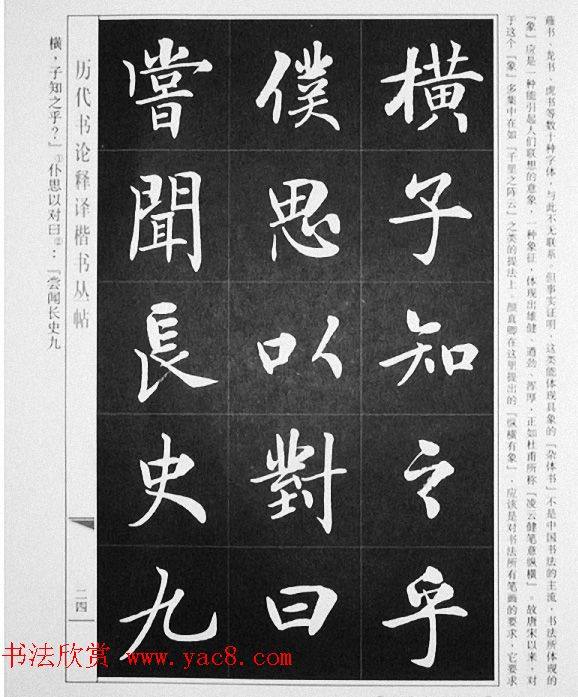 蕹书、龙书、虎书等数十种字体，与此不无联系。但事实证明，这类能体现具象的『杂体书』不是中国书法的主流，书法所体现的
『象』应是一种能引起人们联想的意象，一种象征，体现出雄健、遒劲、浑厚，正如杜甫所称『凌云健笔意纵横』。故唐宋以来，对
于这个『象』多集中在如『千里之阵云』之类的提法上。颜真卿在这里提出的『纵横有象』，应该是对书法所有笔画的要求，它要求
橫子知之乎
僕思以對曰
嘗聞長史九
历代书论释译楷书丛帖
二四
横，子知之乎？』①仆思以对曰②：『尝闻长史九
书法欣赏 www.yac8.com